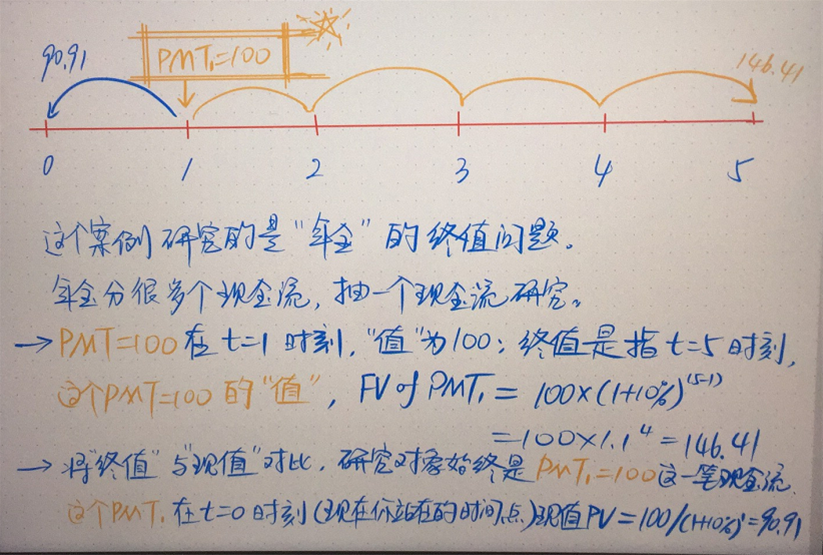 90.91
PMT₁=100
146.41
0 1 2 3 4 5
这个案例研究的是“年金”的终值问题。
年金分很多个现金流，抽一个现金流研究。
→ PMT=100 在 t=1 时刻，“值”为100；终值是指 t=5 时刻，
这个PMT=100 的“值”，FV of PMT₁ = 100×(1+10%)⁽⁵⁻¹⁾
=100×1.1⁴=146.41
→ 将“终值”与“现值”对比，研究对象始终是PMT₁=100这一笔现金流.
这个PMT₁ 在 t=0 时刻(现在你站在的时间点)现值PV=100/(1+10%)¹=90.91